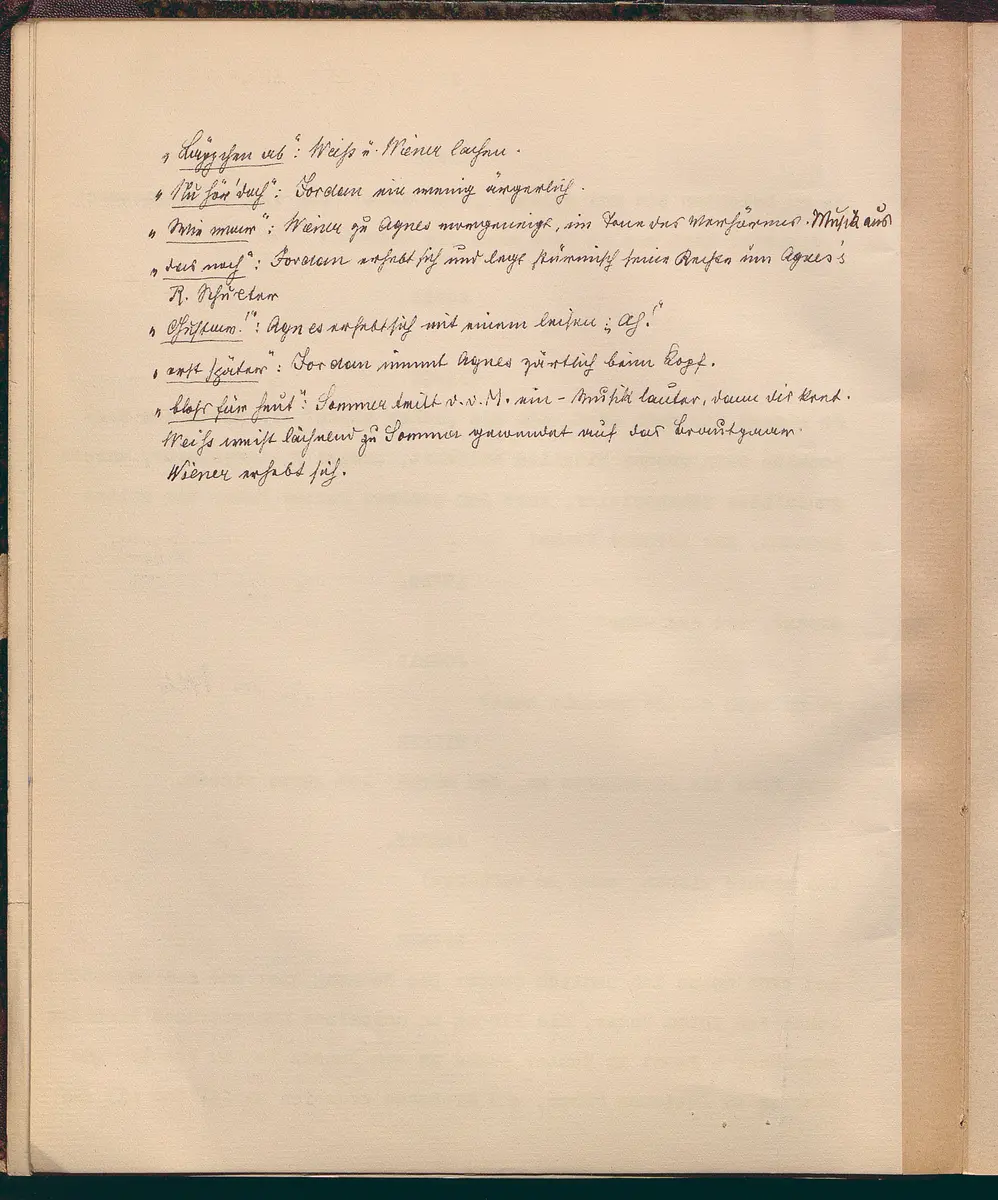 „Läppchen ab“: Weiß u. Wiener lachen.
„Nu hör' doch“: Jordan ein wenig ärgerlich.
„Wie war“: Wiener zu Agnes vorgeneigt, im Tone des Verhörens. Musik aus
„das noch“: Jordan erhebt sich und legt stürmisch seine Rechte um Agnes's
R. Schulter
„Gustav!“: Agnes erhebt sich mit einem leisen: „Ah!“
„erst später“: Jordan nimmt Agnes zärtlich beim Kopf.
„bloß für heut“: Sommer tritt d. d. M. ein – Musik lauter, dann diskret.
Weiß weist lächelnd zu Sommer gewendet auf das Brautpaar.
Wiener erhebt sich.